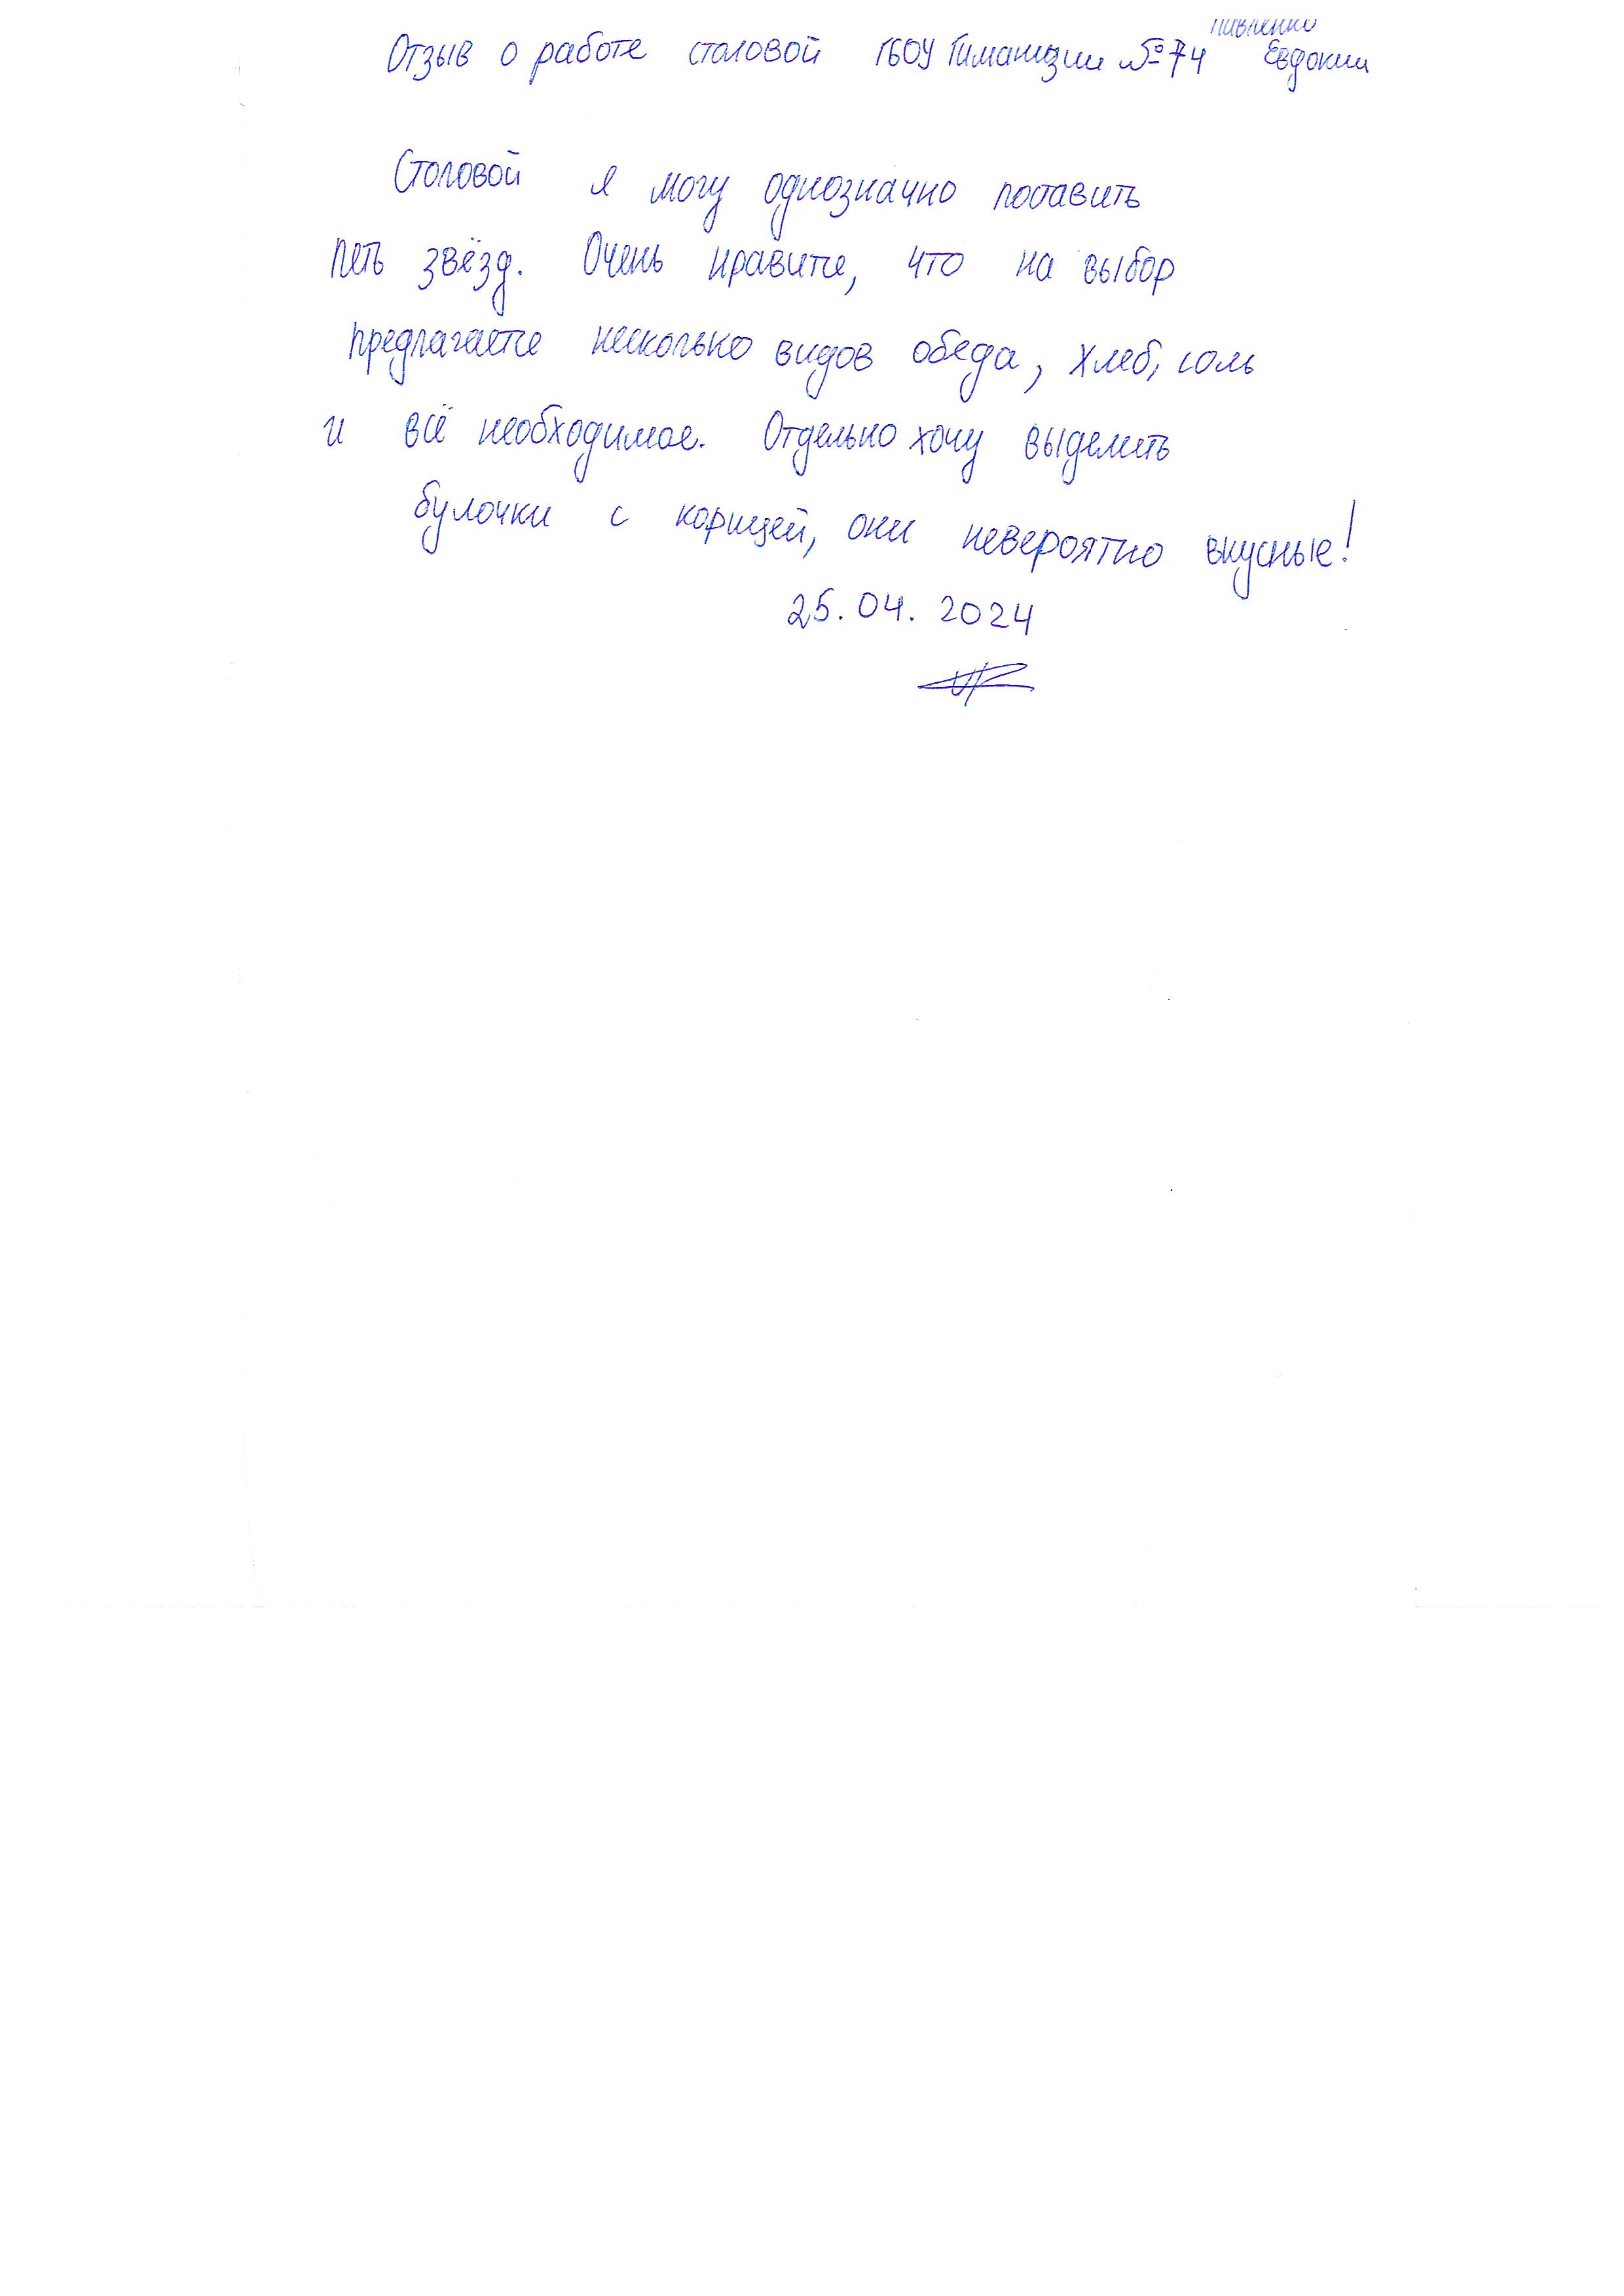 Павленко
Отзыв о работе столовой ГБОУ Гимназии №74 Евдокии
Столовой я могу однозначно поставить
пять звёзд. Очень нравится, что на выбор
предлагается несколько видов обеда, хлеб, соль
и всё необходимое. Отдельно хочу выделить
булочки с корицей, они невероятно вкусные!
25.04.2024